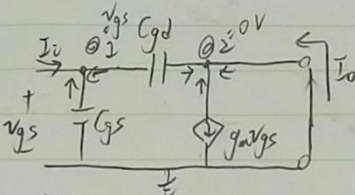 vgs Cgd
Ii @1 @2 0V
Io
+
vgs Cgs gmvgs
-